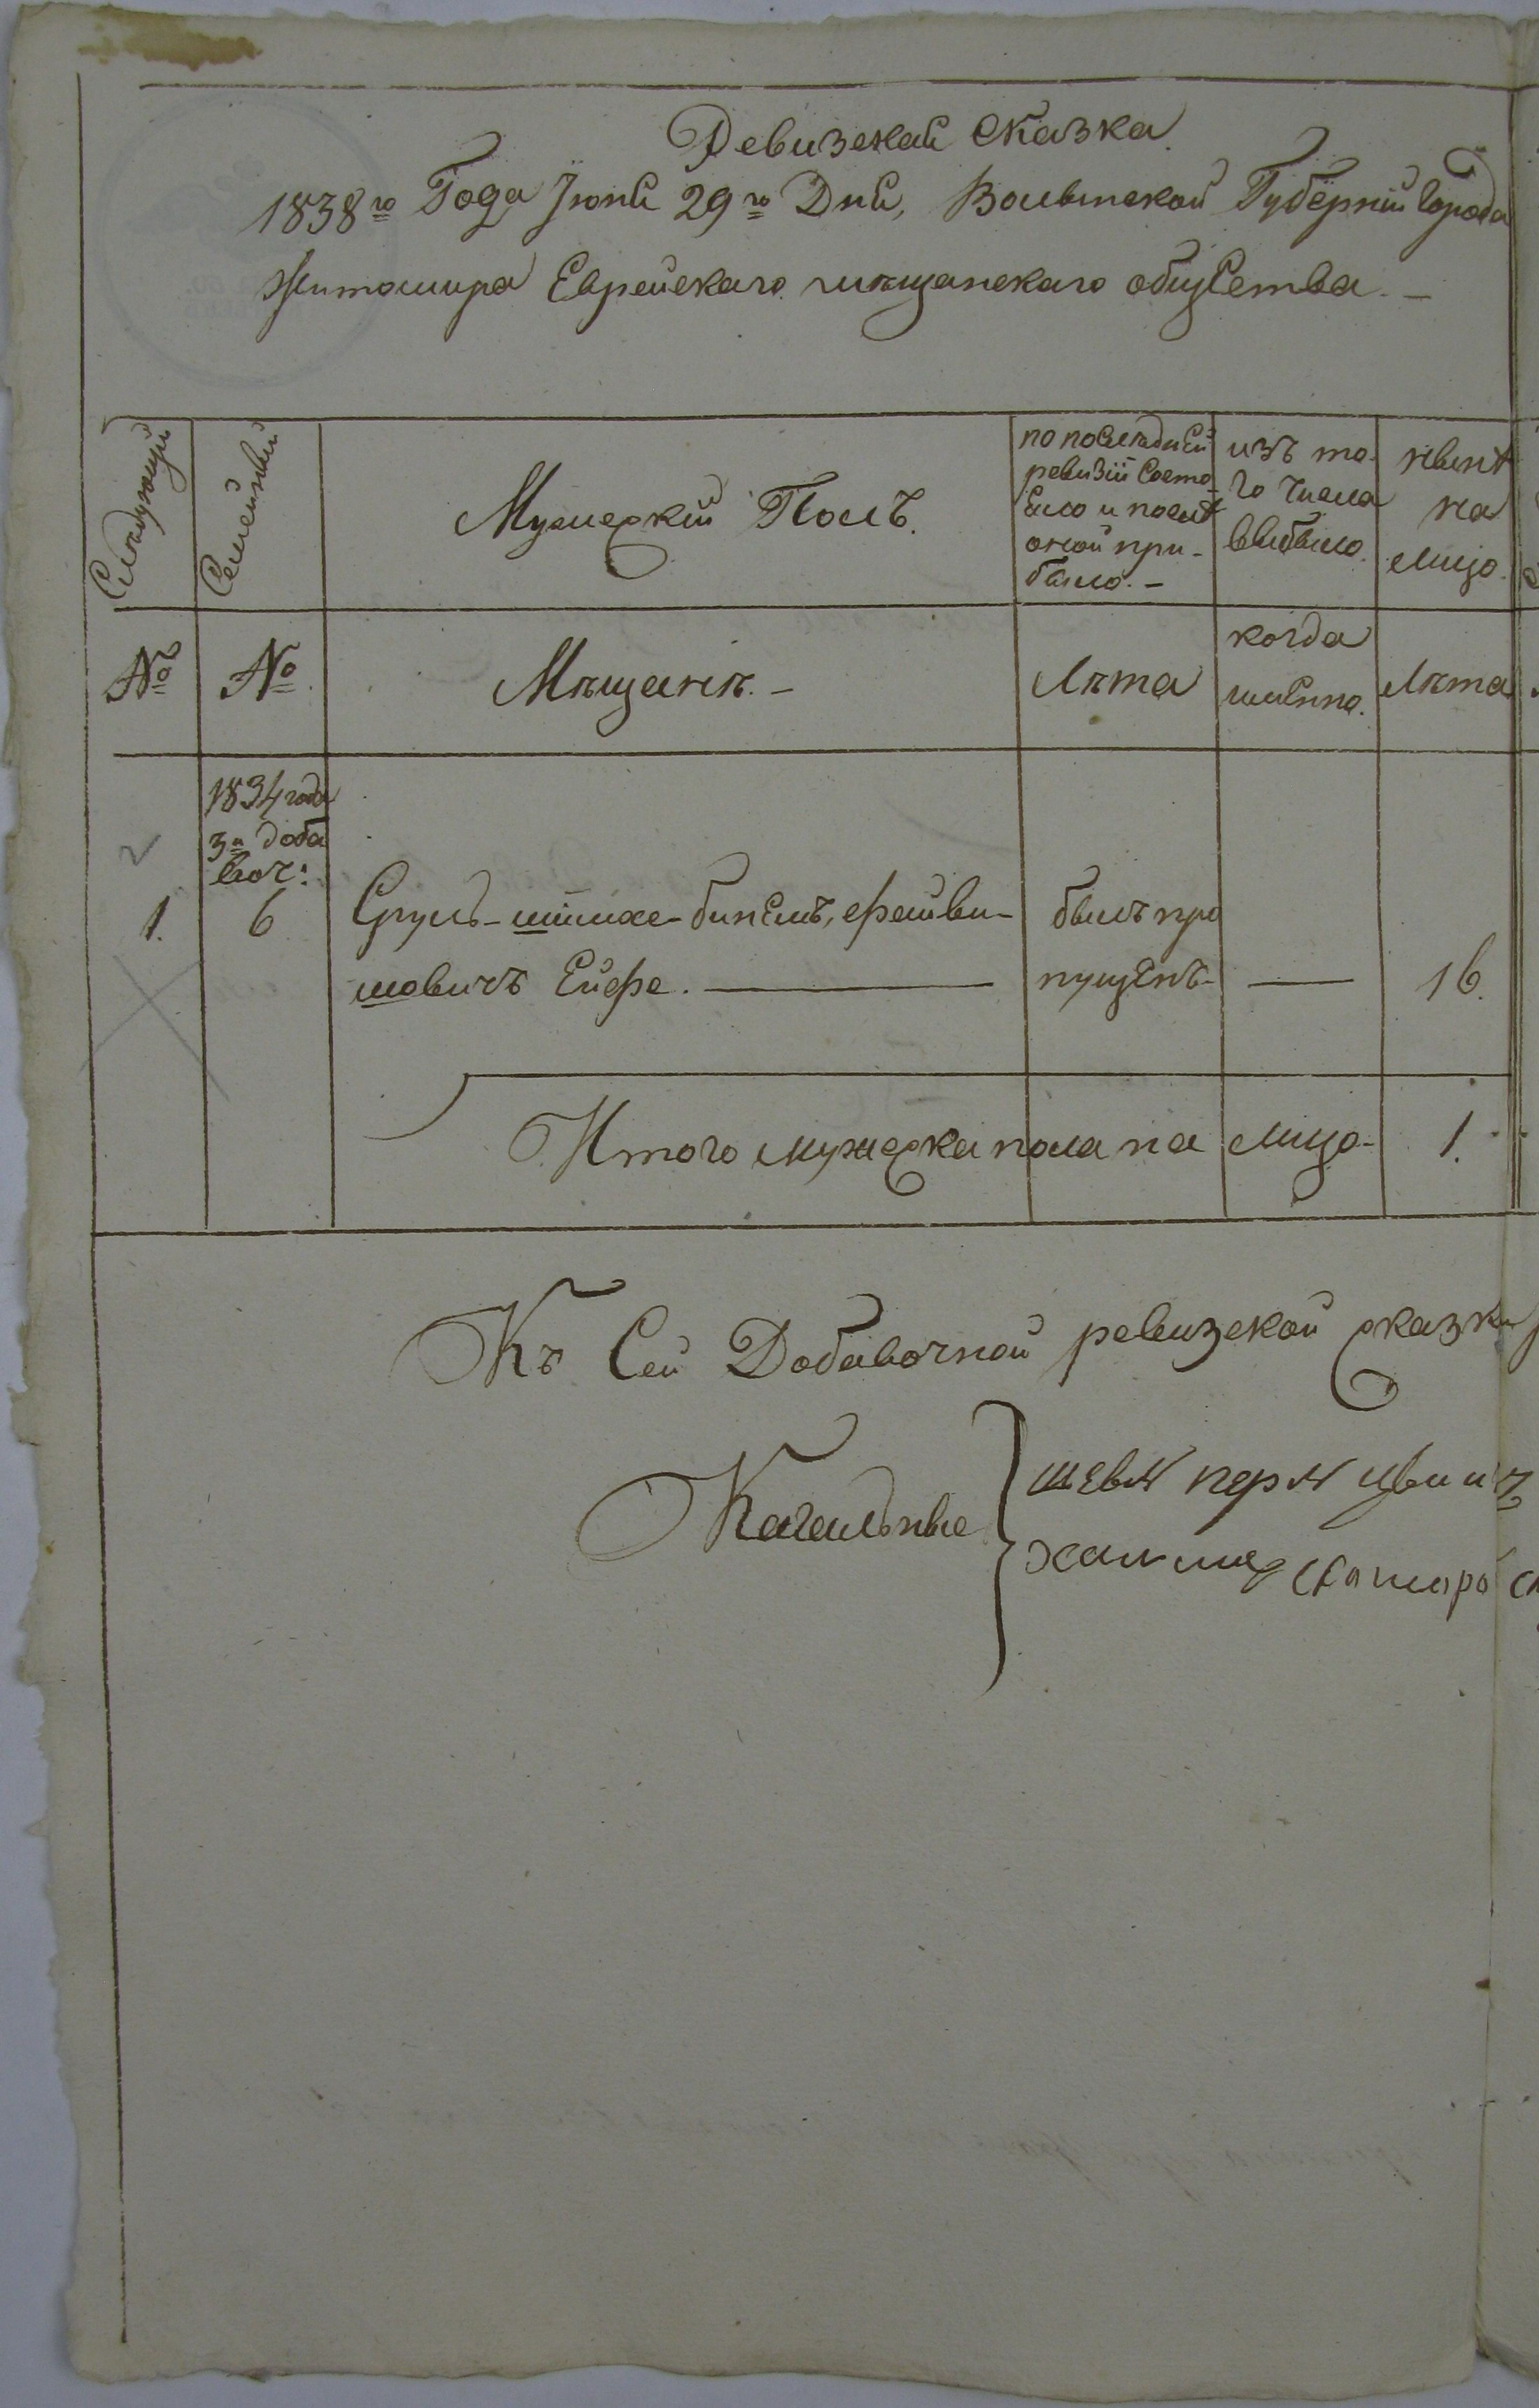 Ревизская сказка
1838го Года Іюня 29го Дня, Волынской Губерніи Города
Житомира Еврейскаго мѣщанскаго общества. –
Слѣдующій
Семейный
Мужескій Полъ.
по послѣдней
ревизіи состо-
яло и послѣ
оной при-
было. –
изъ то-
го числа
выбыло.
нынѣ
на
лицо.
№
№
Мѣщанѣ. –
Лѣта
когда
имЕнно.
Лѣта
1834 года
3я доба
воч:
2
1.
6
Сруль- -бинемъ, Фейви-
шовичъ Ейфе.
былъ про
пущенъ-
—
16.
Итого мужеска пола на лицо-
1.
Къ Сей Добавочной ревизской сказки
Кагальные